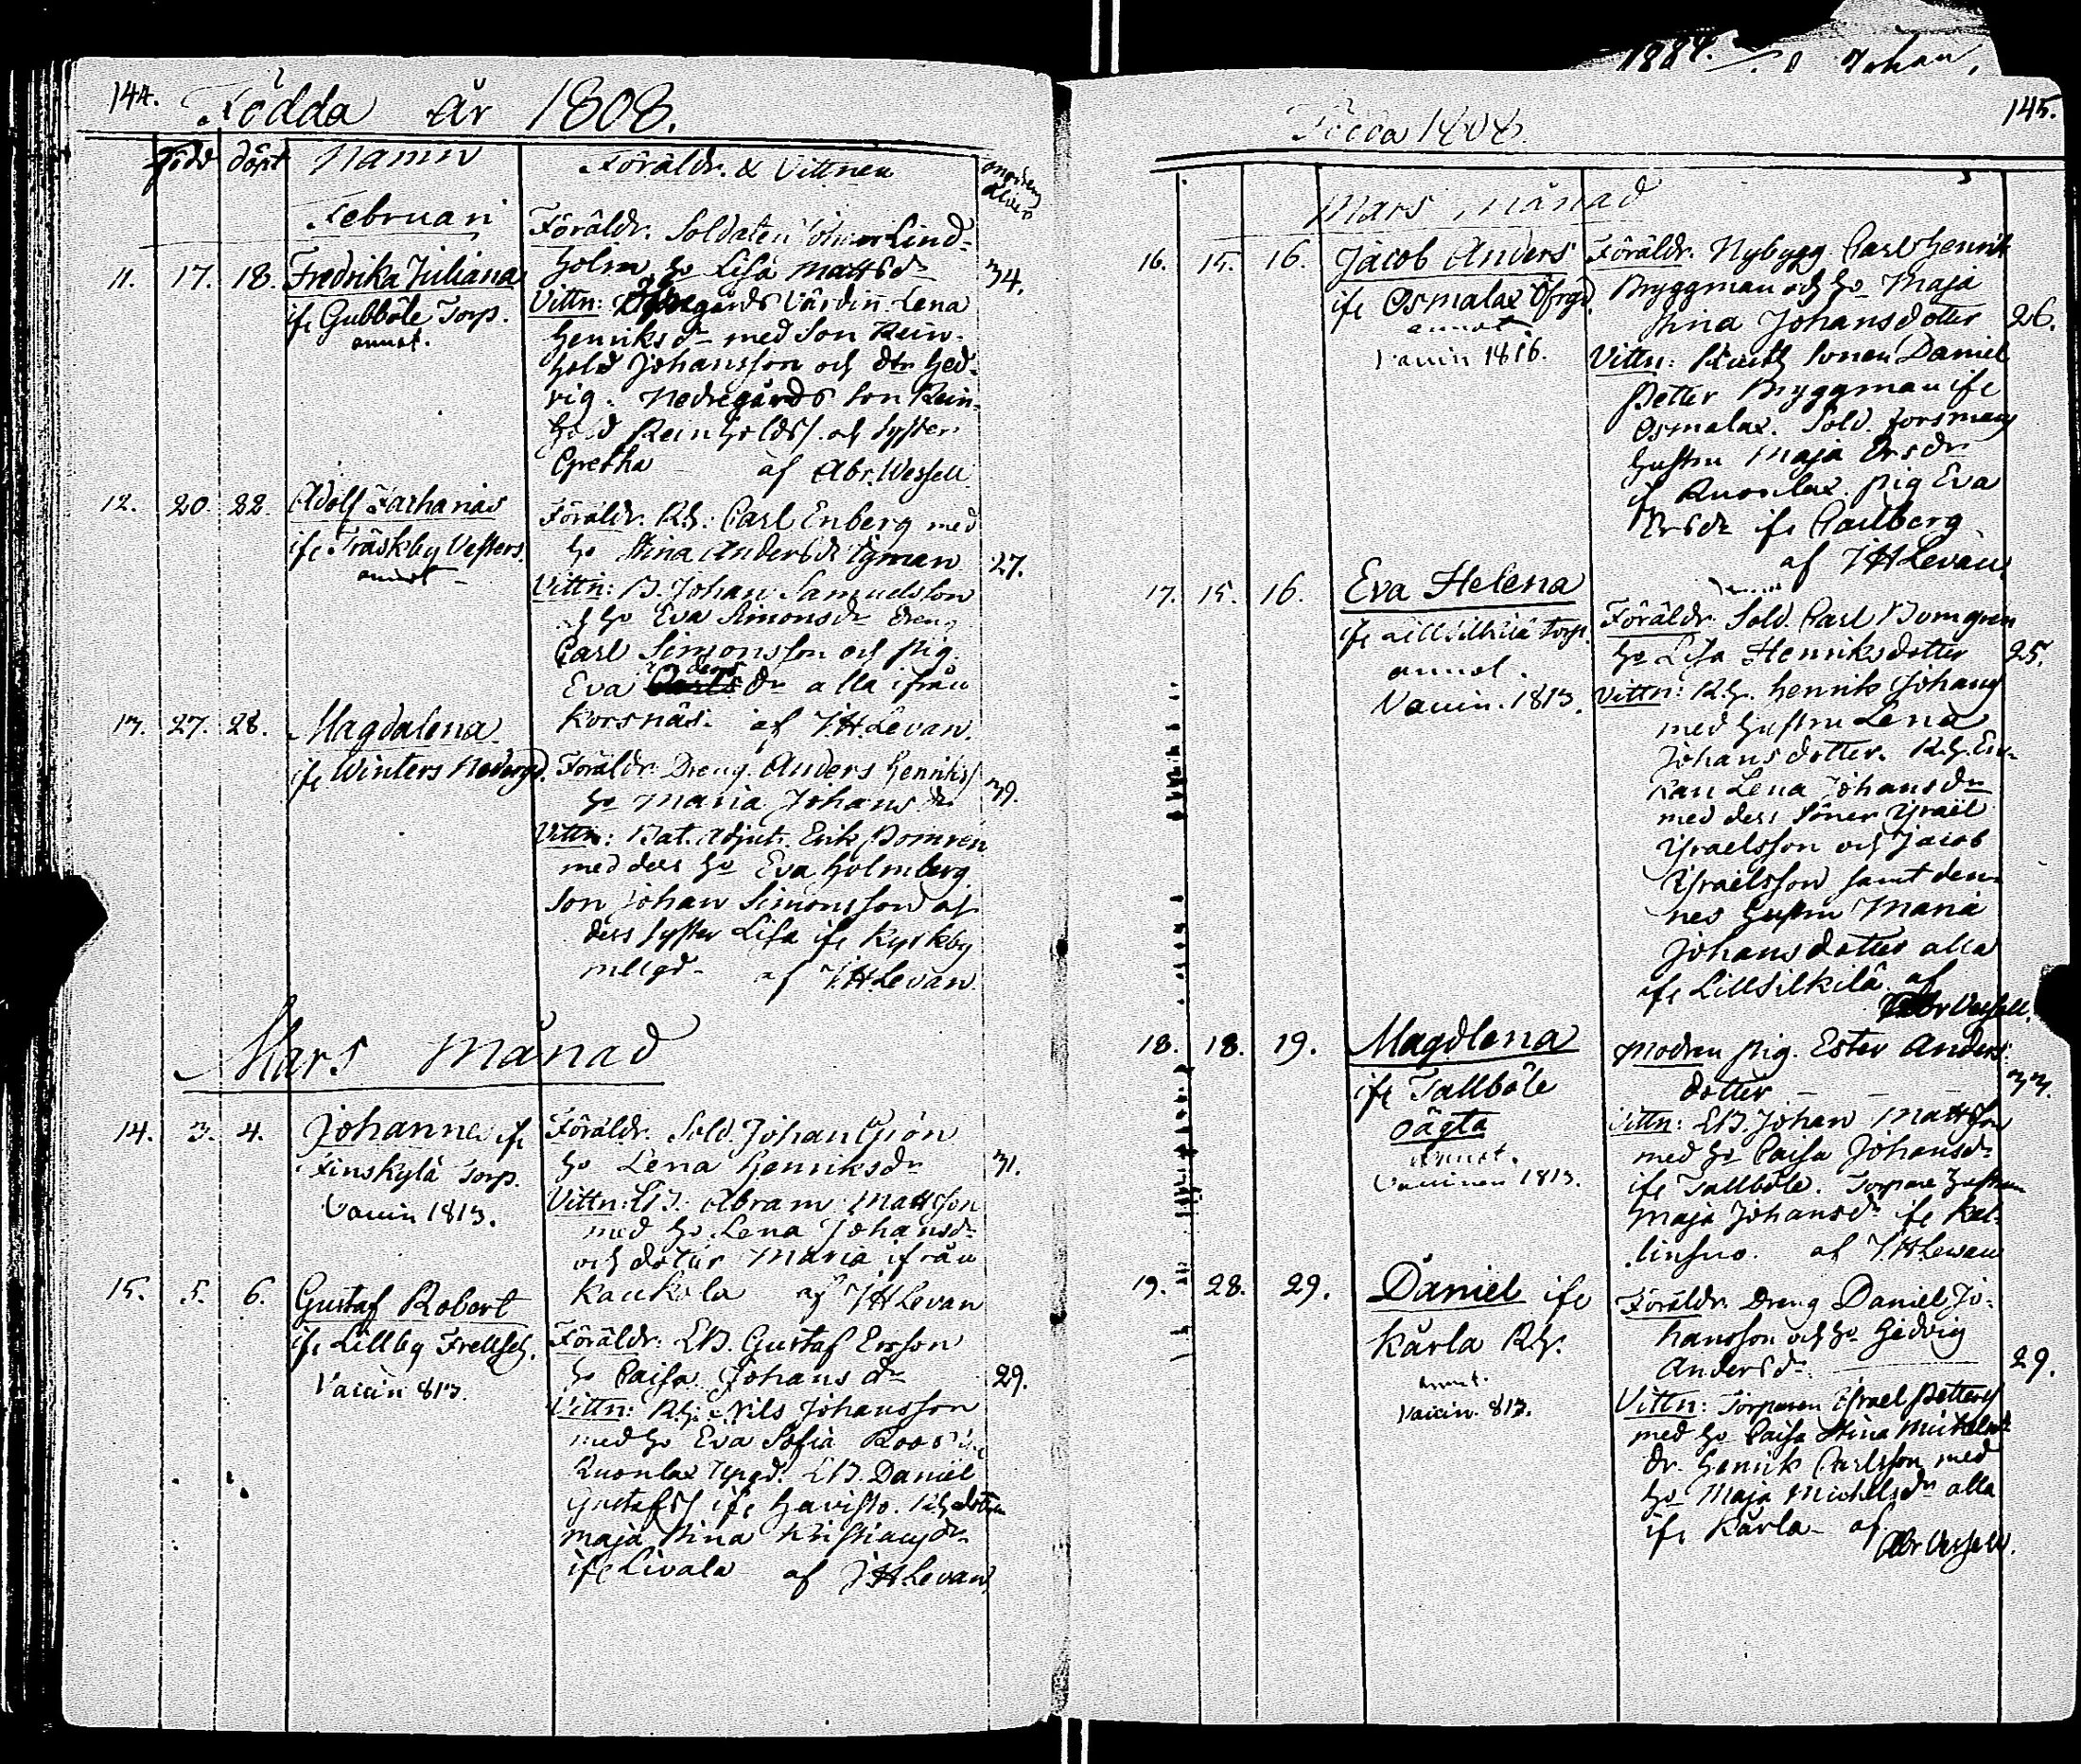 144.
Födda år 1808.
född döpt Namn Föräldr. & Vittnen
Februari
11. 17. 18. Fredrika Juliana
ifr Gubböle Torp.
annot.
Föräldr. Soldaten Johan Lind-
holm, ho Lisa Mattsdr 34.
Vittn: gårds Värdin. Lena
Henriksdr med Son Rein-
hold Johansson och dtr Hed-
vig. Nedregårds Son Rein-
hold Reinholdss. och syster
Gretha af Abr. Wessell
12. 20. 22. Adolf Zachanias
ifr Träskby Vesters.
annot
Föräldr. Rh: Carl Enberg med
ho Stina Andersdr Tyman 27.
Vittn: B. Johan Samuelsson
och ho Eva Simonsdr dreng
Carl Simonsson och pig.
Eva Andersdr alla ifrån
Korsnäs. af J.H.Levan.
13. 27. 28. Magdalena
ifr Winters Nedergd.
Föräldr. Dreng. Anders Henrikss
ho Maria Johansdr 39.
Vittn: Bat. Adjut. Erik Domren
med dess ho Eva Holmberg
Son Johan Simonsson och
dess syster Lisa ifr Kyrkby
mellgd. af J.H.Levan.
Mars Månad
14. 3. 4. Johannes ifr
Finskylä Torp.
Vaccin 1813.
Föräldr. Sold. Johan Grön
ho Lena Henriksdr 31.
Vittn: LB. Abram Mattsson
med ho Lena Johansdr
och dotter Maria ifrån
Kaukola af J.H.Levan
15. 5. 6. Gustaf Robert
ifr Lillby Frellseh.
Vaccin 813.
Föräldr: LB. Gustaf Ersson
ho Caisa Johansdr 29.
Vittn: Rh: Nils Johansson
med ho Eva Sofia Roos
Kuonlax LB. Daniel
Gustafss ifr Havisto. Rh dottren
Maja Stina Christiansdr
ifr Livala af J.H.Levan
1884. Johan,
145.
Födda 1808.
Mars Månad
16. 15. 16. Jacob Anders
ifr Osmalax Öfrgd.
annot
Vaccin 1816.
Föräldr. Nybygg. Carl Henrik
Bryggman och ho Maja
Stina Johansdotter 26.
Vittn: Sonen Daniel
Petter Bryggman ifr
Osmalax. Sold. Forsmans
Hustru Maja Ersdr
if Kuonlax. pig Eva
Ersdr ifr Carlberg
af J.H.Levan
17. 15. 16. Eva Helena
ifr Lillsilkilä Torp.
annot.
Vaccin. 1813.
Föräldr. Sold. Carl Blomgren
ho Lisa Henriksdotter 25.
Vittn: Rh. Henrik Johans
med hustru Lena
Johansdotter. Rh. En-
kan Lena Johansdr
med dess Söner Israel
Israelsson och Jacob
Israelsson samt den-
nes Hustru Maria
Johansdotter alla
ifr Lillsilkilä af
Abr Wessell.
18. 18. 19. Magdlena
ifr Tallböle
oägta
annot.
Vaccinen 1813.
Modren pig. Ester Anders
dotter 33.
Vittn: LB. Johan Mattsson
med ho Caisa Johansdr
ifr Tallböle. Torpare hustrun
Maja Johansdr ifr Kal-
linsuo. af J.H.Levan
19. 28. 29. Daniel ifr
Kårla Rh.
annot.
Vaccin. 813.
Föräldr. Dreng Daniel Jo-
hansson och ho Hedvig
Andersdr. 29.
Vittn: Torparen Israel Petters
med ho Caisa Stina Michels-
dr. Henrik Carlsson med
ho Maja Michelsdr alla
ifr Kårla af
Abr Wessell.